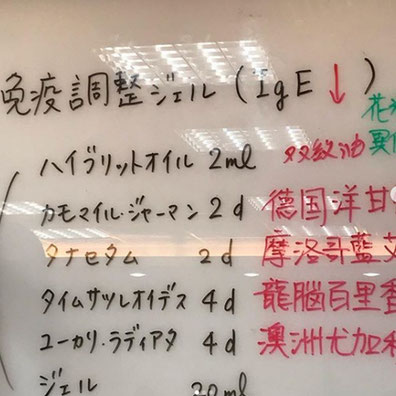 免疫調整ジェル（IgE↓）
花
異
ハイブリットオイル 2ml 双紋油
カモマイル・ジャーマン 2d 德国洋甘
タナセタム 2d 摩洛哥藍艾
タイムサツレオイデス 4d 龍腦百里香
ユーカリ・ラディアタ 4d 澳洲尤加利
ジェル 20ml